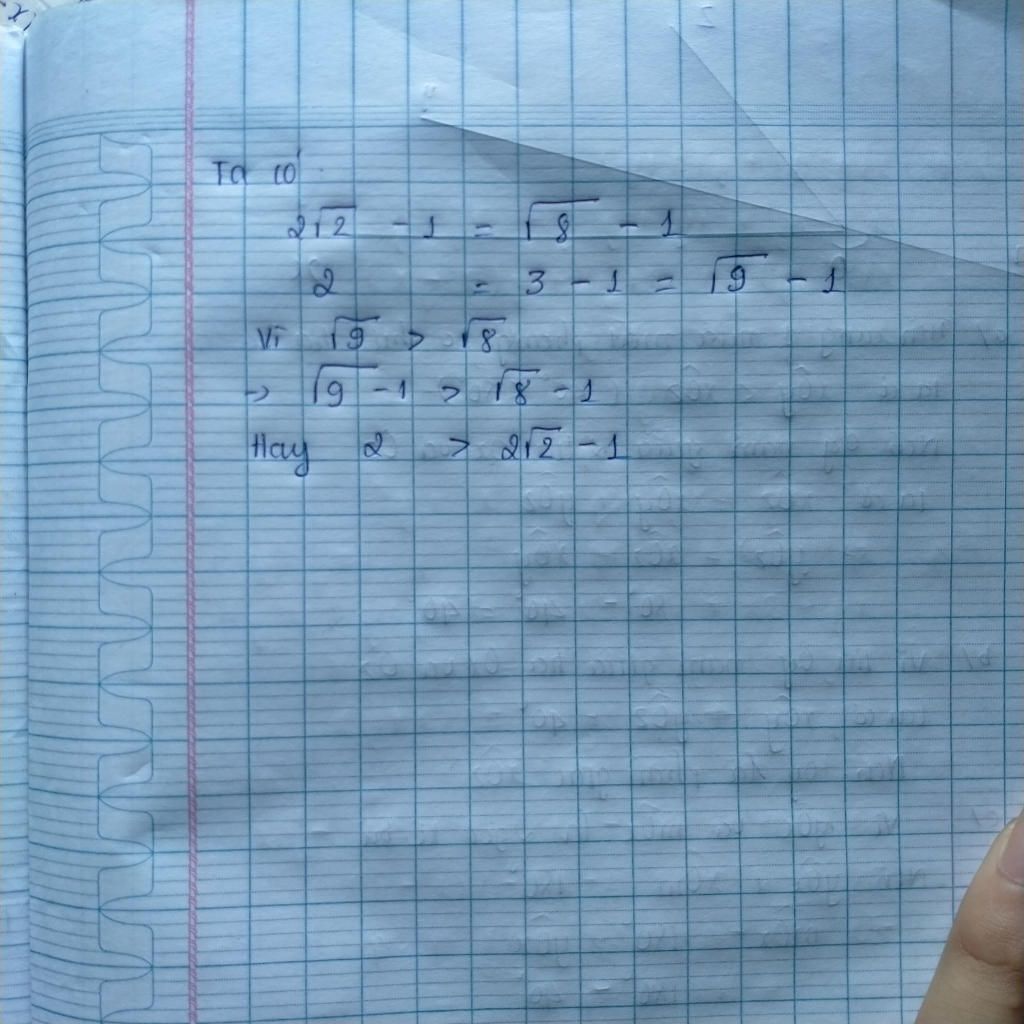 Ta có
2√2 - 1 = √8 - 1
2 = 3 - 1 = √9 - 1
Vì √9 > √8
→ √9 - 1 > √8 - 1
Hay 2 > 2√2 - 1